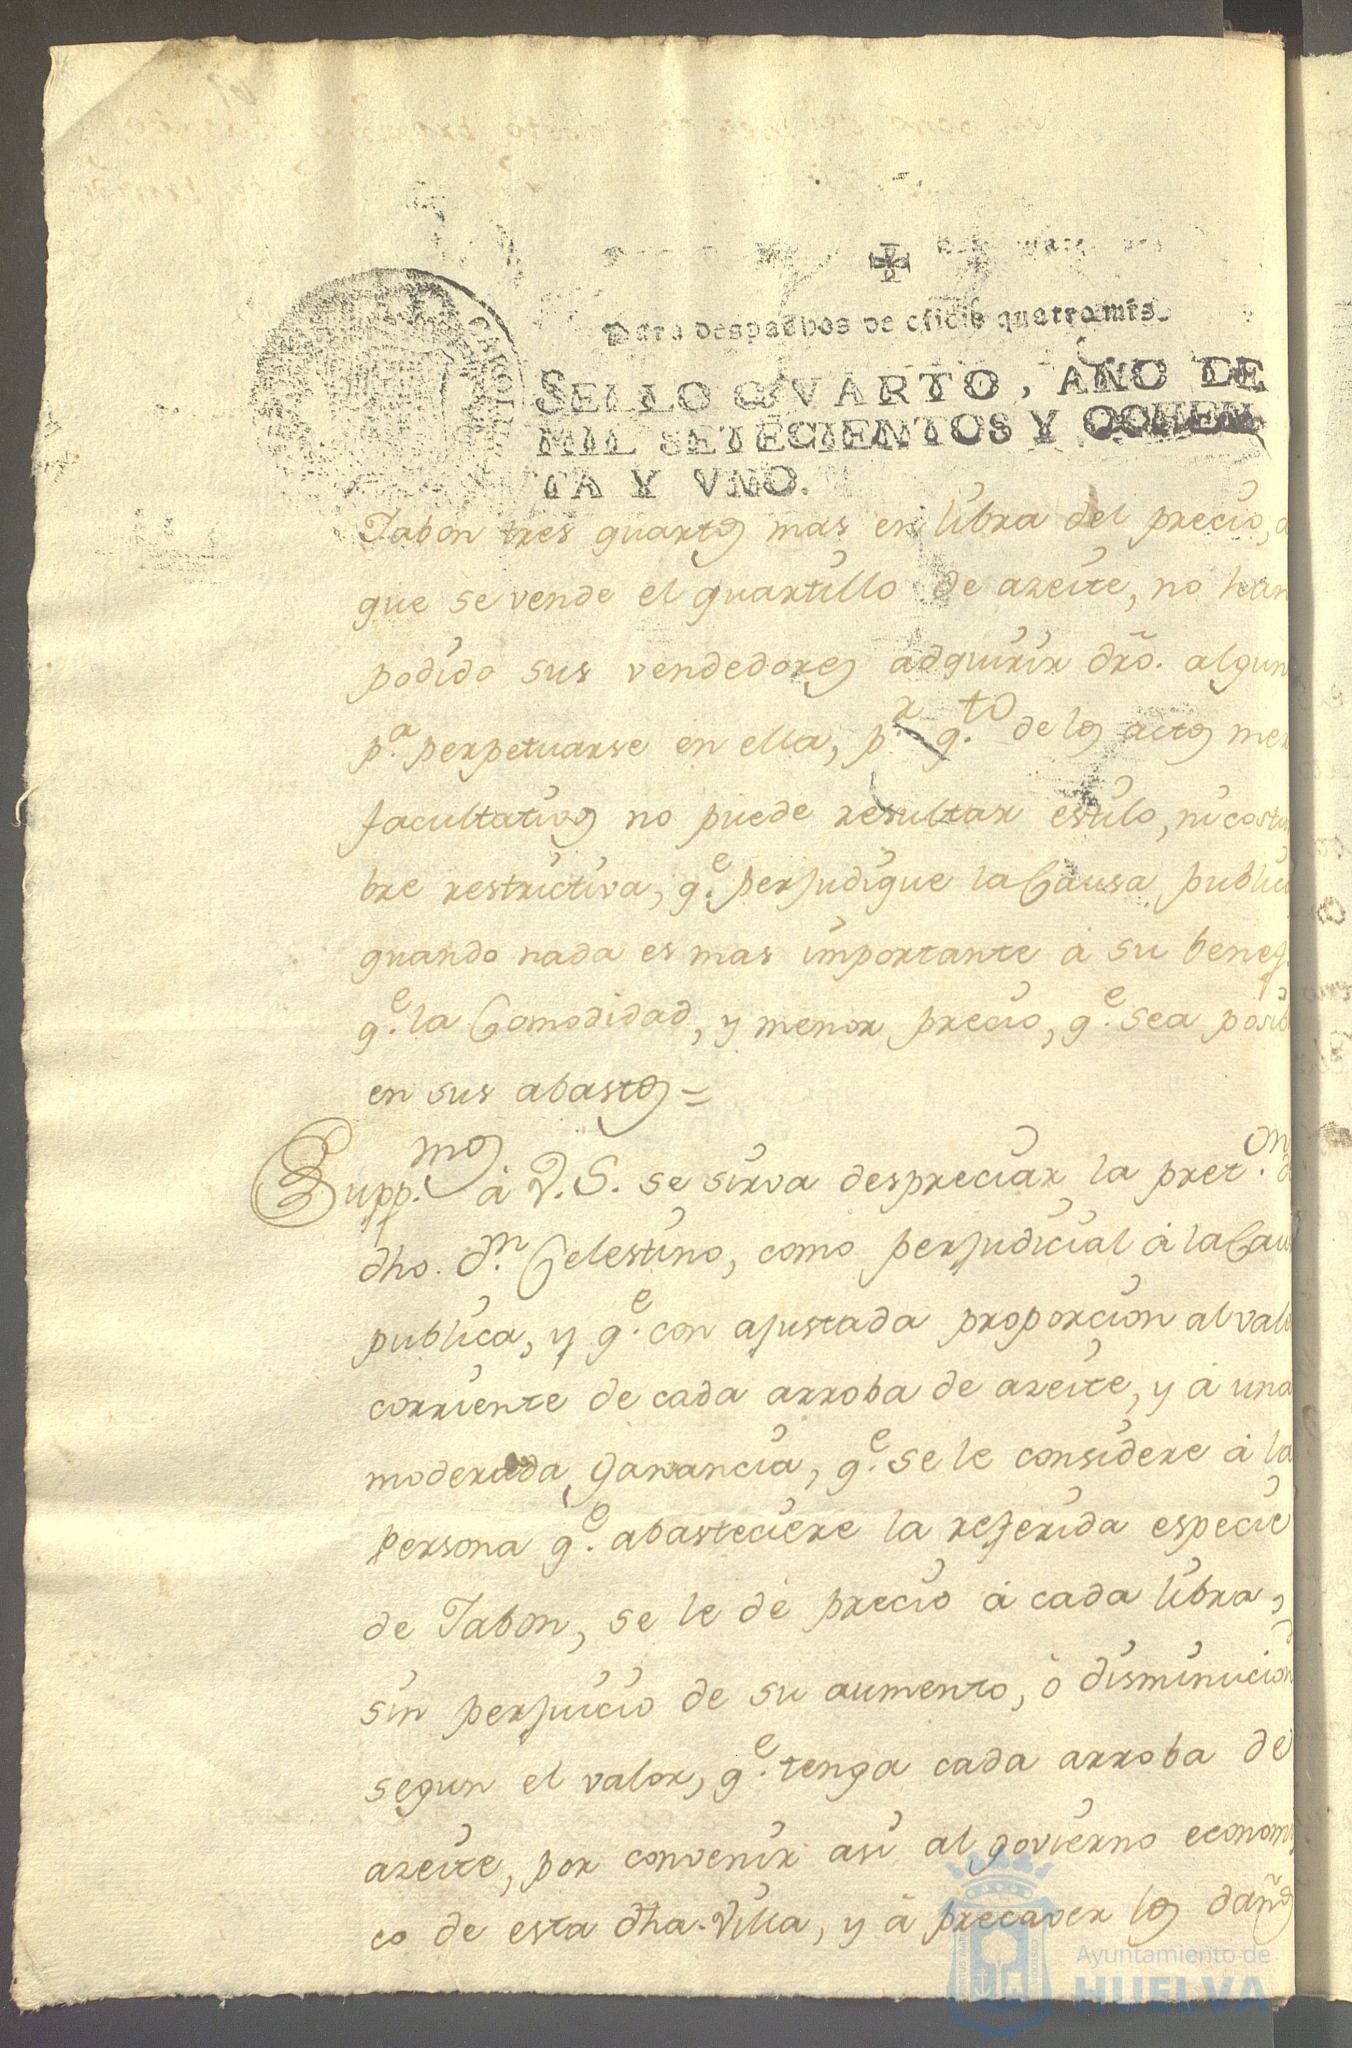 Para despachos de oficio quatro mrs.
SELLO QVARTO, AÑO DE
MIL SETECIENTOS Y OCHEN
TA Y VNO.
Jabon tres quartos mas en libra del precio, a
que se vende el quartillo de azeite, no han
podido sus vendedores adquirir dro. algun
p.a perpetuarse en ella, p.r q.to de los actos mer
facultativos no puede resultar estilo, ni costum
bre restrictiva, q.e perjudique la Causa public
quando nada es mas importante á su benef.
q.e la Comodidad, y menor precio, q.e sea posib
en sus abastos =
Supp.mos á V.S. se sirva despreciar la pret.on d
dho. d.n Celestino, como perjudicial á la Cau
publica, y q.e con ajustada proporcion al valo
corriente de cada arroba de azeite, y á una
moderada ganancia, q.e se le considere á la
persona q.e abasteciere la referida especie
de Jabon, se le dé precio á cada libra,
sin perjuicio de su aumento, ó disminucion
segun el valor, q.e tenga cada arroba de
azeite, por convenir asi al govierno economi
co de esta dha. Villa, y á precaver los daños
Ayuntamiento de
HUELVA